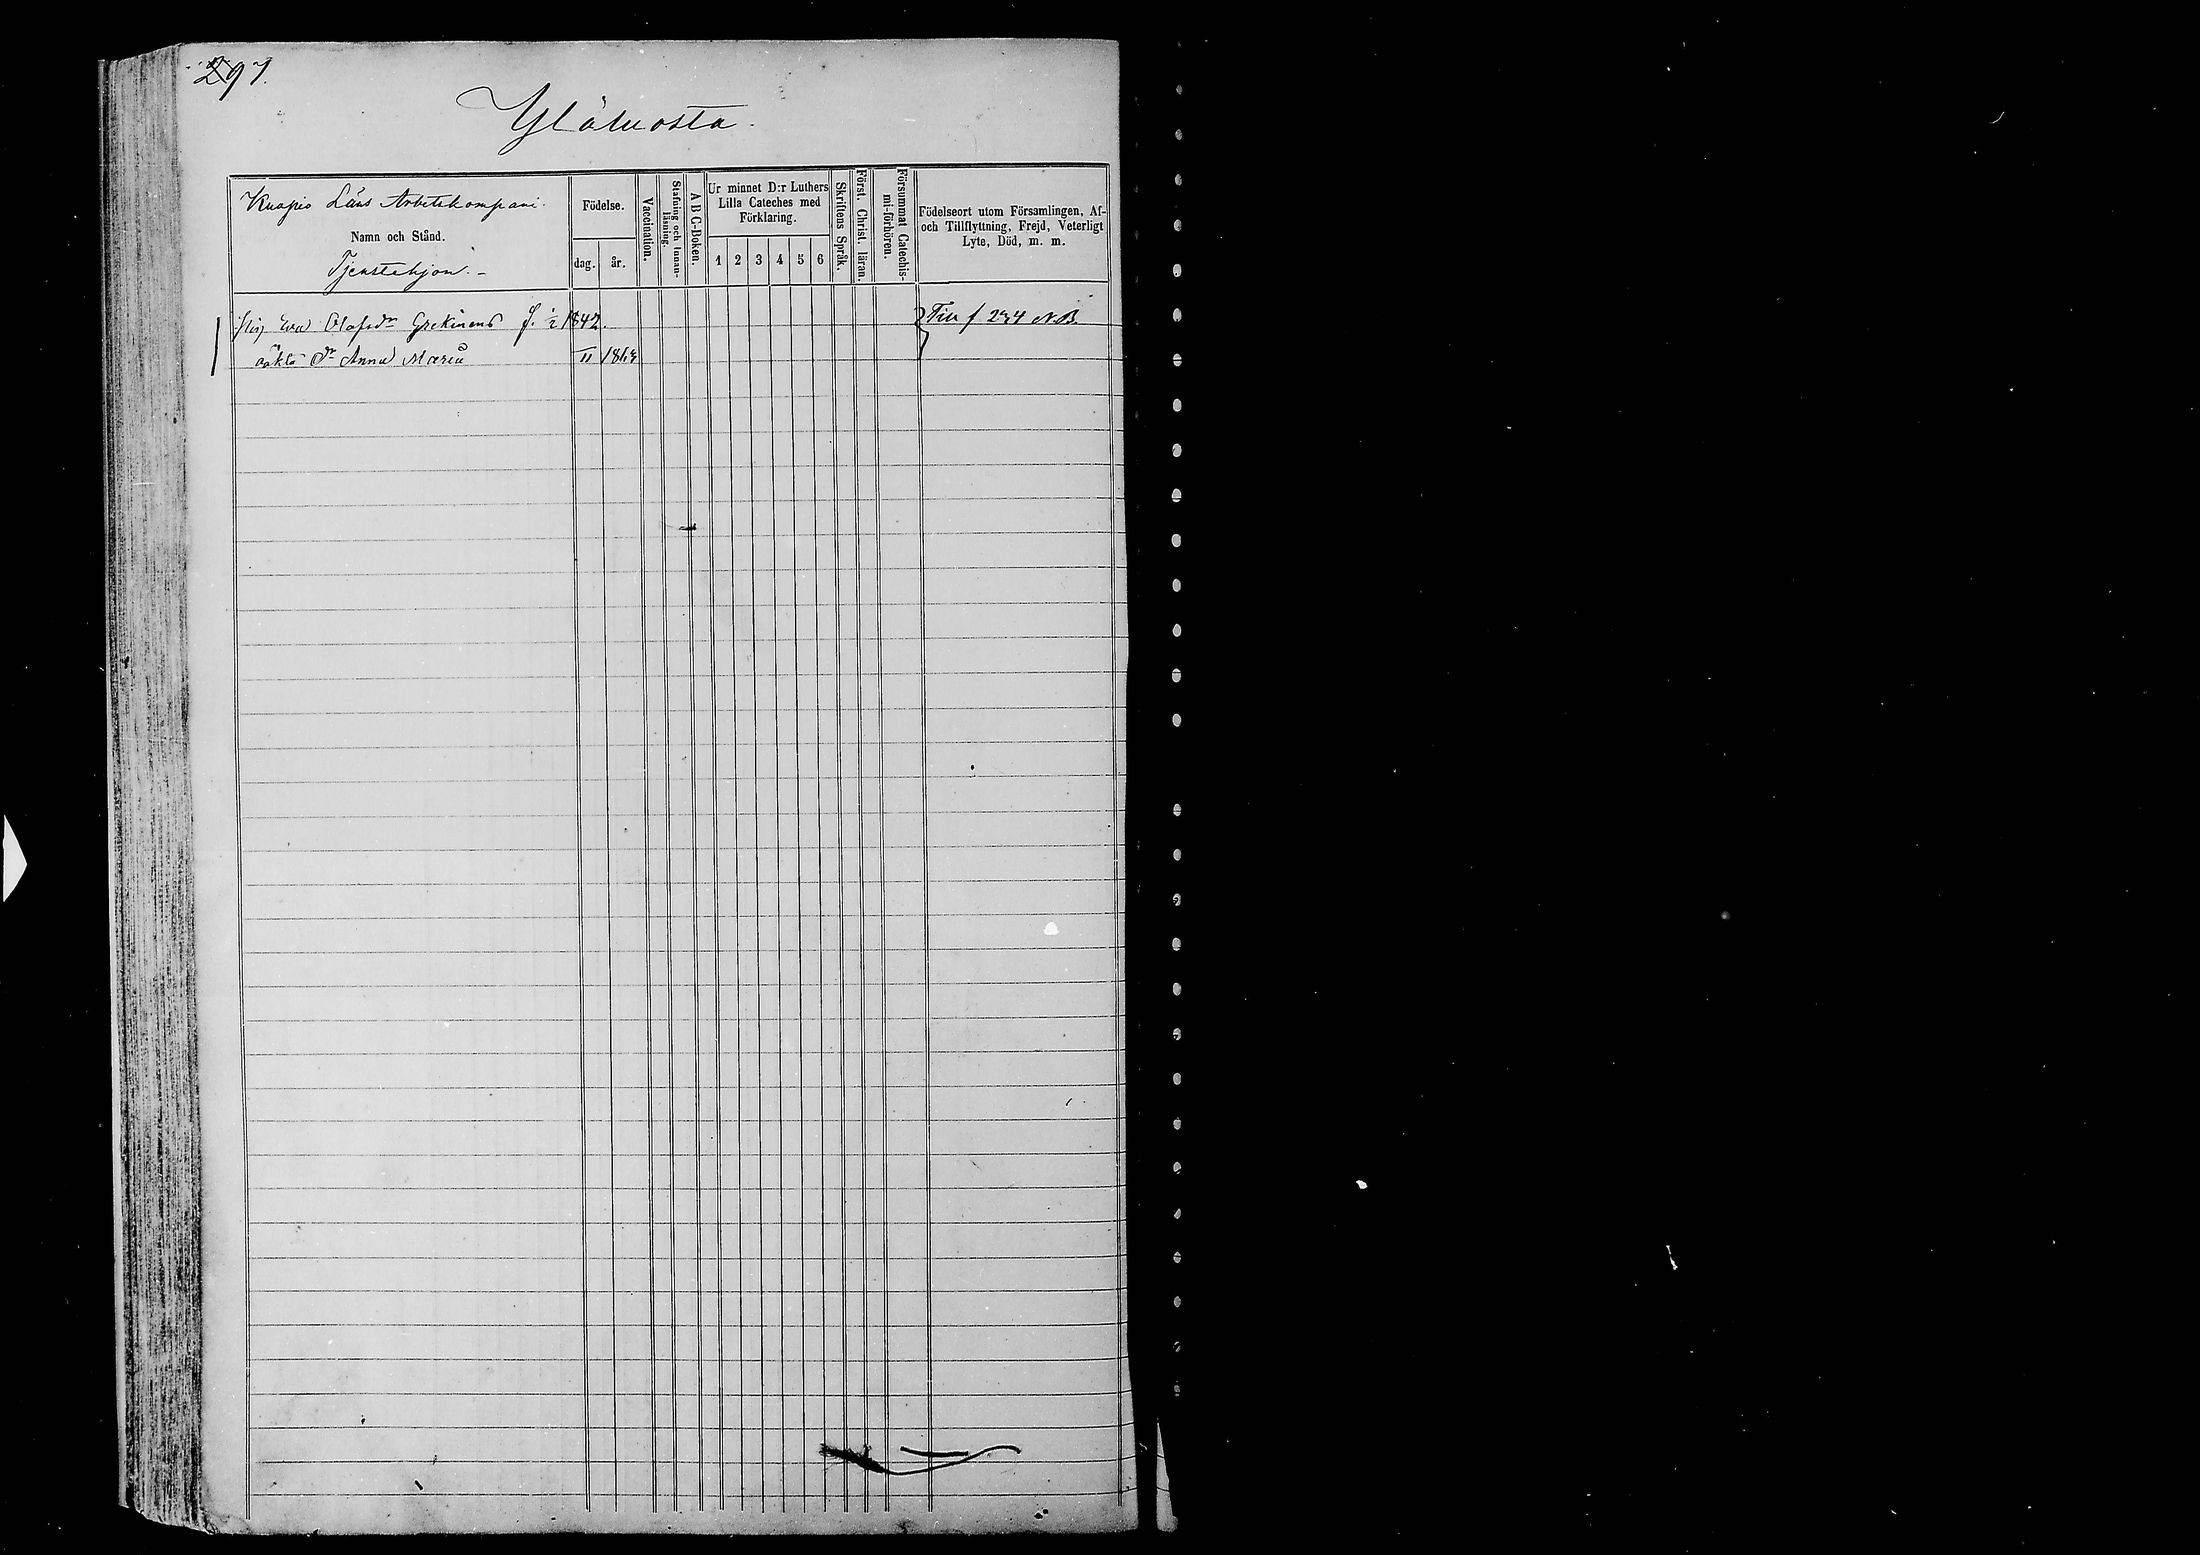 297.
Yläluosta.
Kuopio Läns Arbetskompani.
Namn och Stånd.
Tjenstehjon.
Födelse.
dag.
år.
Vaccination.
Stafning och Innan-
läsning.
A B C-Boken.
Ur minnet D:r Luthers
Lilla Cateches med
Förklaring.
1 2 3 4 5 6
Skriftens Språk.
Först. Christ. läran.
Försummat Catechis-
mi-förhören.
Födelseort utom Församlingen, Af-
och Tillflyttning, Frejd, Veterligt
Lyte, Död, m. m.
Eva Olofsdr Grekinens f. 1/2 1842.
Till f 274 N.B.
oäkta Dr Anna Maria